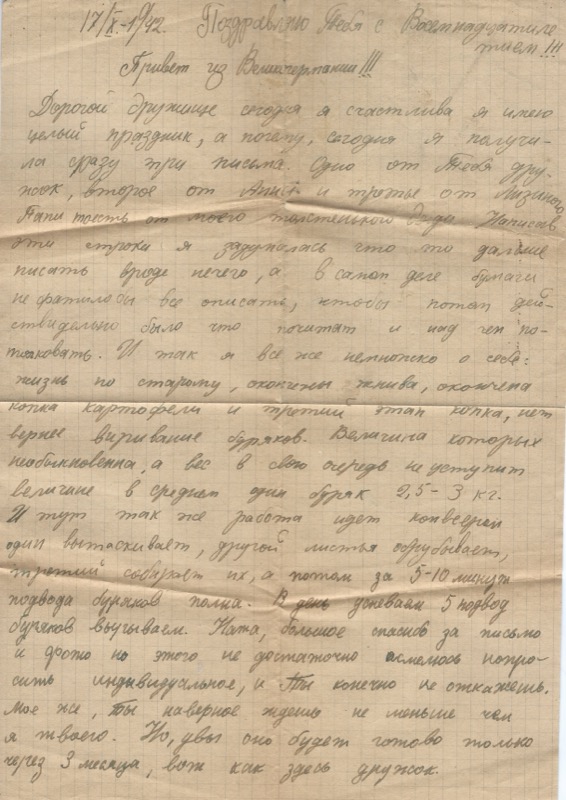 17/X-1942. Поздравляю Тебя с Восемнадцатиле
тием!!!
Привет из Великогермании!!!
Дорогой дружище сегодня я счастлива я имею
целый праздник, а почему, сегодня я получи-
ла сразу три письма. Одно от Тебя дру-
жок, второе от Ани и третье от Лизиного
Папи тоесть от моего толстенького дяди. Написав
эти строки я задумалась что то дальше
писать вроде нечего, а в самом деле бумаги
не фатилобы все описать, чтобы потом дей-
ствидельно было что почитат и над чем по-
толковать. И так я все же немножко о себе:
жизнь по старому, окончены жнива, окончена
копка картофели и третий этап копка, нет
вернее виривание буряков. Величина которых
необыкновенна, а вес в свою очередь не уступит
величине в среднем один буряк 2,5-3 кг.
И тут так же работа идет конвеером
один вытаскивает, другой листья обрубывает,
третий собирает их, а потом за 5-10 минут
подвода буряков полна. В день успеваем 5 подвод
буряков выгываем. Ната, большое спасибо за письмо
и фото но этого не достаточно осмелюсь попро-
сить индивидуальное, и Ты конечно не откажешь.
Мое же, Ты наверное ждешь не меньше чем
я твоего. Но, увы оно будет готово только
через 3 месяца, вот как здесь дружок.